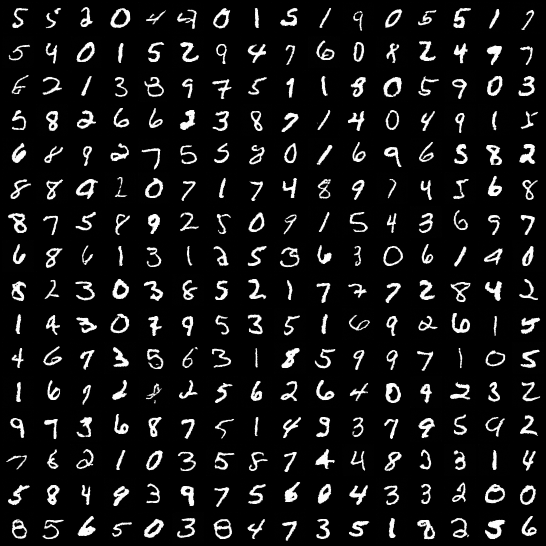 5 5 2 0 4 2 0 1 5 1 9 0 5 5 1 7
5 4 0 1 5 2 9 4 7 6 0 8 2 4 9 7
5 2 1 3 8 9 7 5 1 1 8 0 5 9 0 3
5 8 2 6 6 2 3 8 7 1 4 0 4 9 1 5
6 8 9 2 7 5 5 8 0 1 6 9 6 5 8 2
8 8 9 2 0 7 1 7 4 8 9 7 4 5 6 8
8 7 5 8 9 2 5 0 9 1 5 4 3 6 9 7
6 8 6 1 3 1 2 5 3 6 3 0 6 1 4 0
8 2 3 0 3 8 5 2 1 7 7 7 2 8 4 2
1 4 3 0 7 9 5 3 5 1 6 9 2 6 1 5
4 6 7 3 5 6 3 1 8 5 9 9 7 1 0 5
1 6 9 2 8 2 5 6 2 6 4 0 9 2 3 2
9 7 3 6 8 7 5 1 4 3 3 7 9 5 9 2
7 6 2 1 0 3 5 8 7 4 4 8 3 3 1 4
5 8 4 9 3 9 7 5 6 0 4 3 3 2 0 0
8 5 6 5 0 3 8 4 7 3 5 1 8 2 5 6